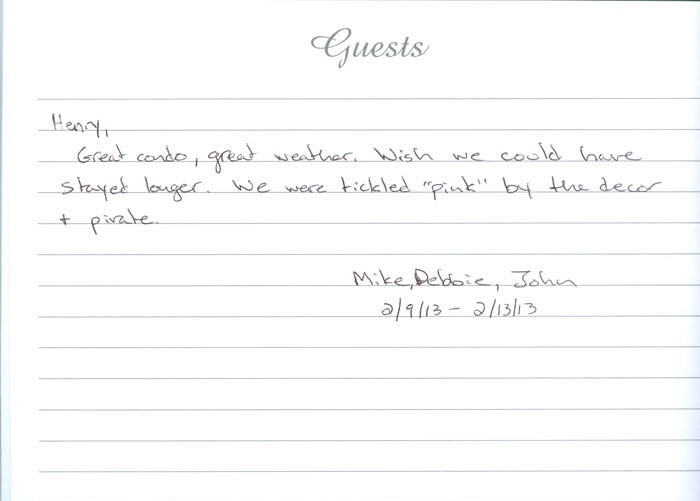 Guests
Henry,
Great condo, great weather. Wish we could have
stayed longer. We were tickled "pink" by the decor
+ pirate.
Mike, Debbie, John
2/9/13 - 2/13/13